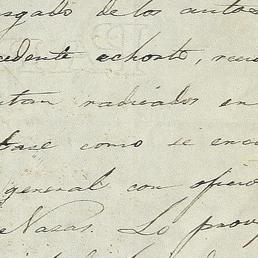 sgado de los autos
cedente exhorto, reci
stan radicados en
base como se encu
general con oficio
e Nazas. Lo prov